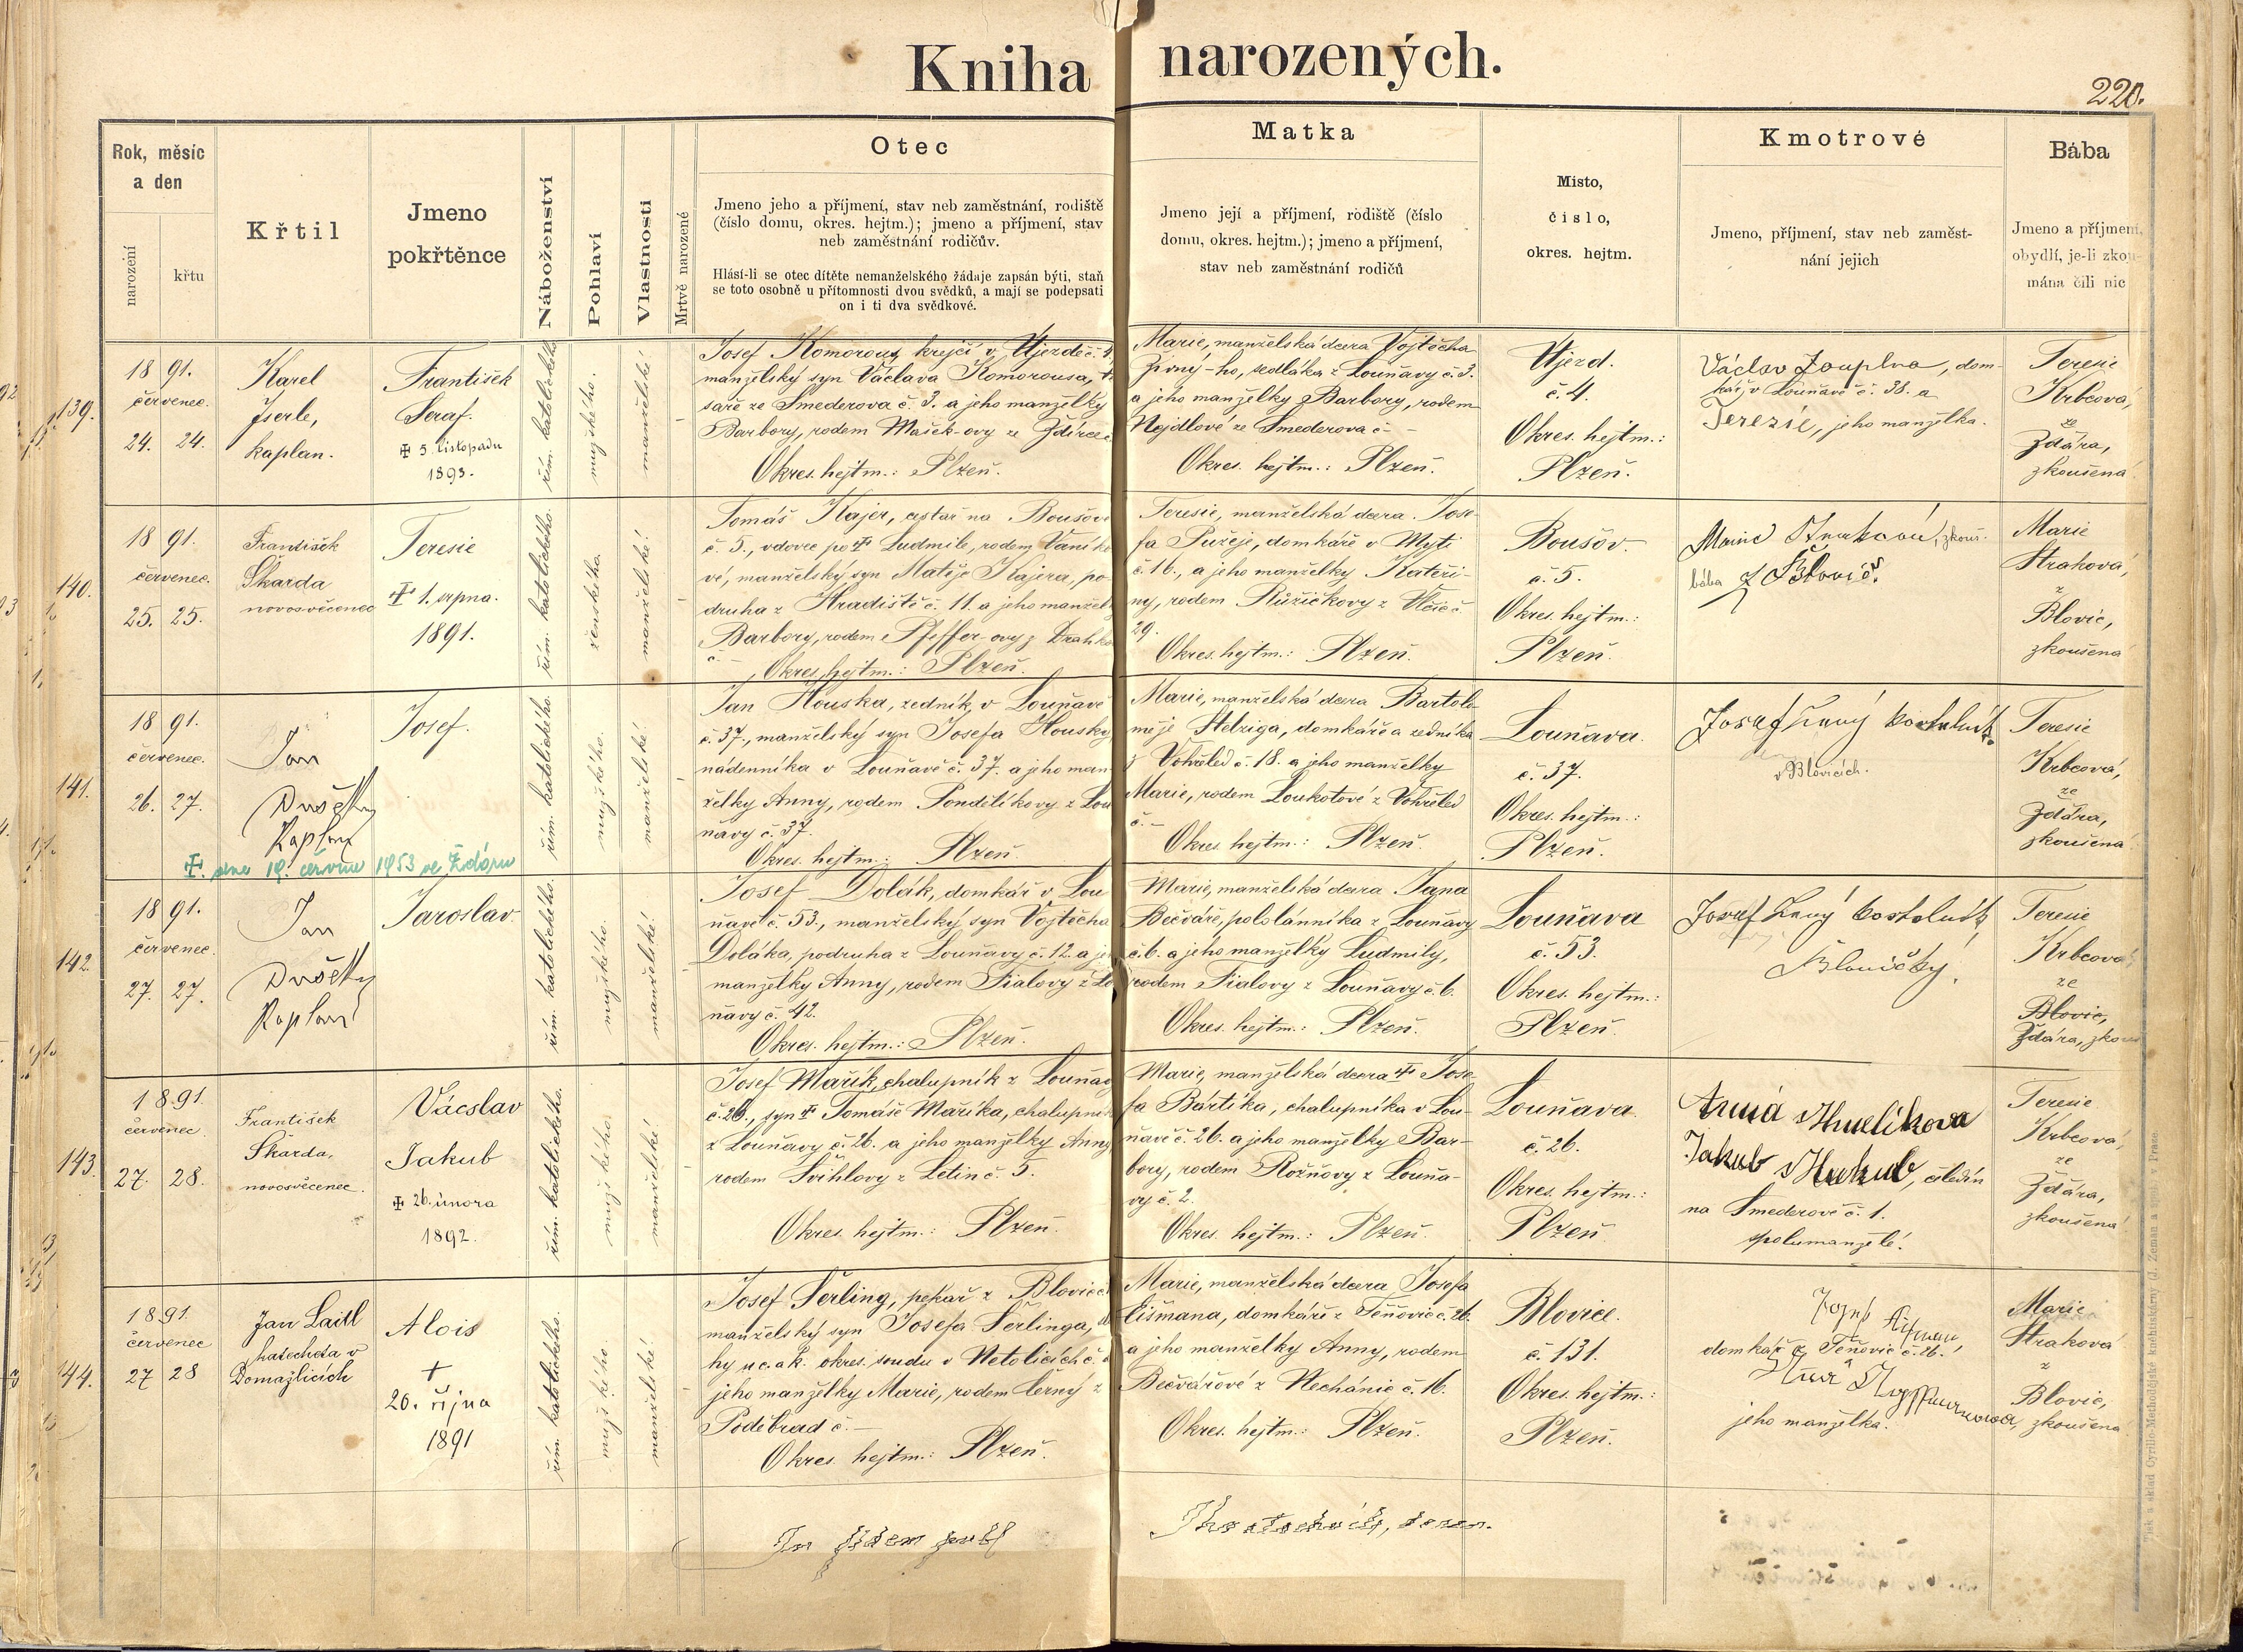 Kniha narozených.
220.
Rok, měsíc
a den
narození
křtu
Křtil
Jmeno
pokřtěnce
Náboženství
Pohlaví
Vlastnosti
Mrtvě narozené
Otec
Jmeno jeho a příjmení, stav neb zaměstnání, rodiště
(číslo domu, okres. hejtm.); jmeno a příjmení, stav
neb zaměstnání rodičův.
Hlásí-li se otec dítěte nemanželského žádaje zapsán býti, staň
se toto osobně u přítomnosti dvou svědků, a mají se podepsati
on i ti dva svědkové.
Matka
Jmeno její a příjmení, rodiště (číslo
domu, okres. hejtm.); jmeno a příjmení,
stav neb zaměstnání rodičů
Místo,
číslo,
okres. hejtm.
Kmotrové
Jmeno, příjmení, stav neb zaměst-
nání jejich
Bába
Jmeno a příjmení,
obydlí, je-li zkou-
mána čili nic
139.
1891.
červenec.
24. 24.
Karel
Jserle,
kaplan.
František
Seraf.
✠ 5. listopadu
1893.
řím. katolického
mužského.
manželské
Josef Komorous, krejčí v Újezdě č. 4,
manželský syn Václava Komorousa,
saře ze Smederova č. 3. a jeho manželky
Barbory, rodem Mašek-ovy ze Ždírce
Okres. hejtm.: Plzeň.
Marie, manželská dcera Vojtěcha
Živný-ho, sedláka z Louňavy č. 3.
a jeho manželky Barbory, rodem
Nejdlové ze Smederova č. –
Okres. hejtm.: Plzeň.
Újezd.
č. 4.
Okres. hejtm.:
Plzeň.
Václav Zouplna, dom-
kář v Louňavě č. 38. a
Terezie, jeho manželka.
Teresie
Krbcová,
ze
Ždára,
zkoušená
140.
1891.
červenec.
25. 25.
František
Škarda
novosvěcenec
Teresie
✠ 1. srpna.
1891.
řím. katolického.
ženského.
manželské!
Tomáš Kajer, cestář na Boušově
č. 5., vdovec po ✠ Ludmile, rodem Vaníko
vé, manželský syn Matěje Kajera, po-
druha z Hradiště č. 11. a jeho manžel
Barbory, rodem Pfeffer-ovy z Drahko
č. –
Okres. hejtm.: Plzeň.
Teresie, manželská dcera Jose-
fa Pužeje, domkáře v Mýti
č. 16., a jeho manželky Kateři-
ny, rodem Růžičkovy z Vlčic č.
29.
Okres. hejtm.: Plzeň.
Boušov.
č. 5.
Okres. hejtm.:
Plzeň.
Marie Straková, zkouš.
bába z Blovic.
Marie
Straková,
z
Blovic,
zkoušená
141.
1891.
červenec.
26. 27.
Jan
Dušek
Kaplan
Josef.
✠ dne 19. června 1953 ve Ždáru
řím. katolického.
mužského.
manželské
Jan Houska, zedník v Louňavě
č. 37., manželský syn Josefa Housky,
nádenníka v Louňavě č. 37. a jeho man-
želky Anny, rodem Pondělíkovy z Lou
ňavy č. 37.
Okres. hejtm.: Plzeň.
Marie, manželská dcera Bartolo
měje Helziga, domkáře a zedníka
z Vohřeled č. 18. a jeho manželky
Marie, rodem Loukotové z Vohřeled
č. –
Okres. hejtm.: Plzeň.
Louňava.
č. 37.
Okres. hejtm.:
Plzeň.
Josef Levý kostelník
v Blovicích.
Teresie
Krbcová,
ze
Ždára,
zkoušená
142.
1891.
červenec.
27. 27.
Jan
Dušek
Kaplan
Jaroslav
řím. katolického.
mužského.
manželské!
Josef Dolák, domkář v Lou
ňavě č. 53., manželský syn Vojtěcha
Doláka, podruha z Louňavy č. 12. a je
manželky Anny, rodem Fialovy z Lo
ňavy č. 42.
Okres. hejtm.: Plzeň.
Marie, manželská dcera Jana
Bečváře, pololánníka z Louňavy
č. 6. a jeho manželky Ludmily,
rodem Fialovy z Louňavy č. 6.
Okres. hejtm.: Plzeň.
Louňava
č. 53.
Okres. hejtm.:
Plzeň.
Josef Levý kostelník
Blovický.
Teresie
Krbcová
ze
Blovic,
Ždára, zkou
143.
1891.
červenec.
27. 28.
František
Škarda,
novosvěcenec.
Vácslav
Jakub
✠ 26. února
1892.
řím. katolického.
mužského
manželské
Josef Mařík, chalupník z Louňav
č. 26., syn ✠ Tomáše Maříka, chalupník
z Louňavy č. 26. a jeho manželky Anny
rodem Švihlovy z Letin č. 5.
Okres. hejtm.: Plzeň.
Marie, manželská dcera ✠ Jose-
fa Bártíka, chalupníka v Lou-
ňavě č. 26. a jeho manželky Bar-
bory, rodem Rožňovy z Louňa-
vy č. 2.
Okres. hejtm.: Plzeň.
Louňava.
č. 26.
Okres. hejtm.:
Plzeň
Anna
Jakub
čeledín
na Smederově č. 1.
spolumanželé.
Teresie
Krbcová,
ze
Ždára,
zkoušená
144.
1891.
červenec
27 28
Jan Laitl
katecheta v
Domažlicích
Alois
+
20. října
1891
řím. katolického.
mužského
manželské!
Josef Šerling, pekař z Blovic č.
manželský syn Josefa Šerlinga,
hy u c. a k. okres. soudu v Netolicích č.
jeho manželky Marie, rodem Černý z
Poděbrad č. –
Okres. hejtm.: Plzeň.
Marie, manželská dcera Josefa
Čišmana, domkáře z Těňovic č. 26.
a jeho manželky Anny, rodem
Bečvářové z Nechánic č. 16.
Okres. hejtm.: Plzeň.
Blovice.
č. 131.
Okres. hejtm.:
Plzeň.
Josef
domkář z Těňovic č. 26.
jeho manželka.
Marie
Straková
z
Blovic,
zkoušená